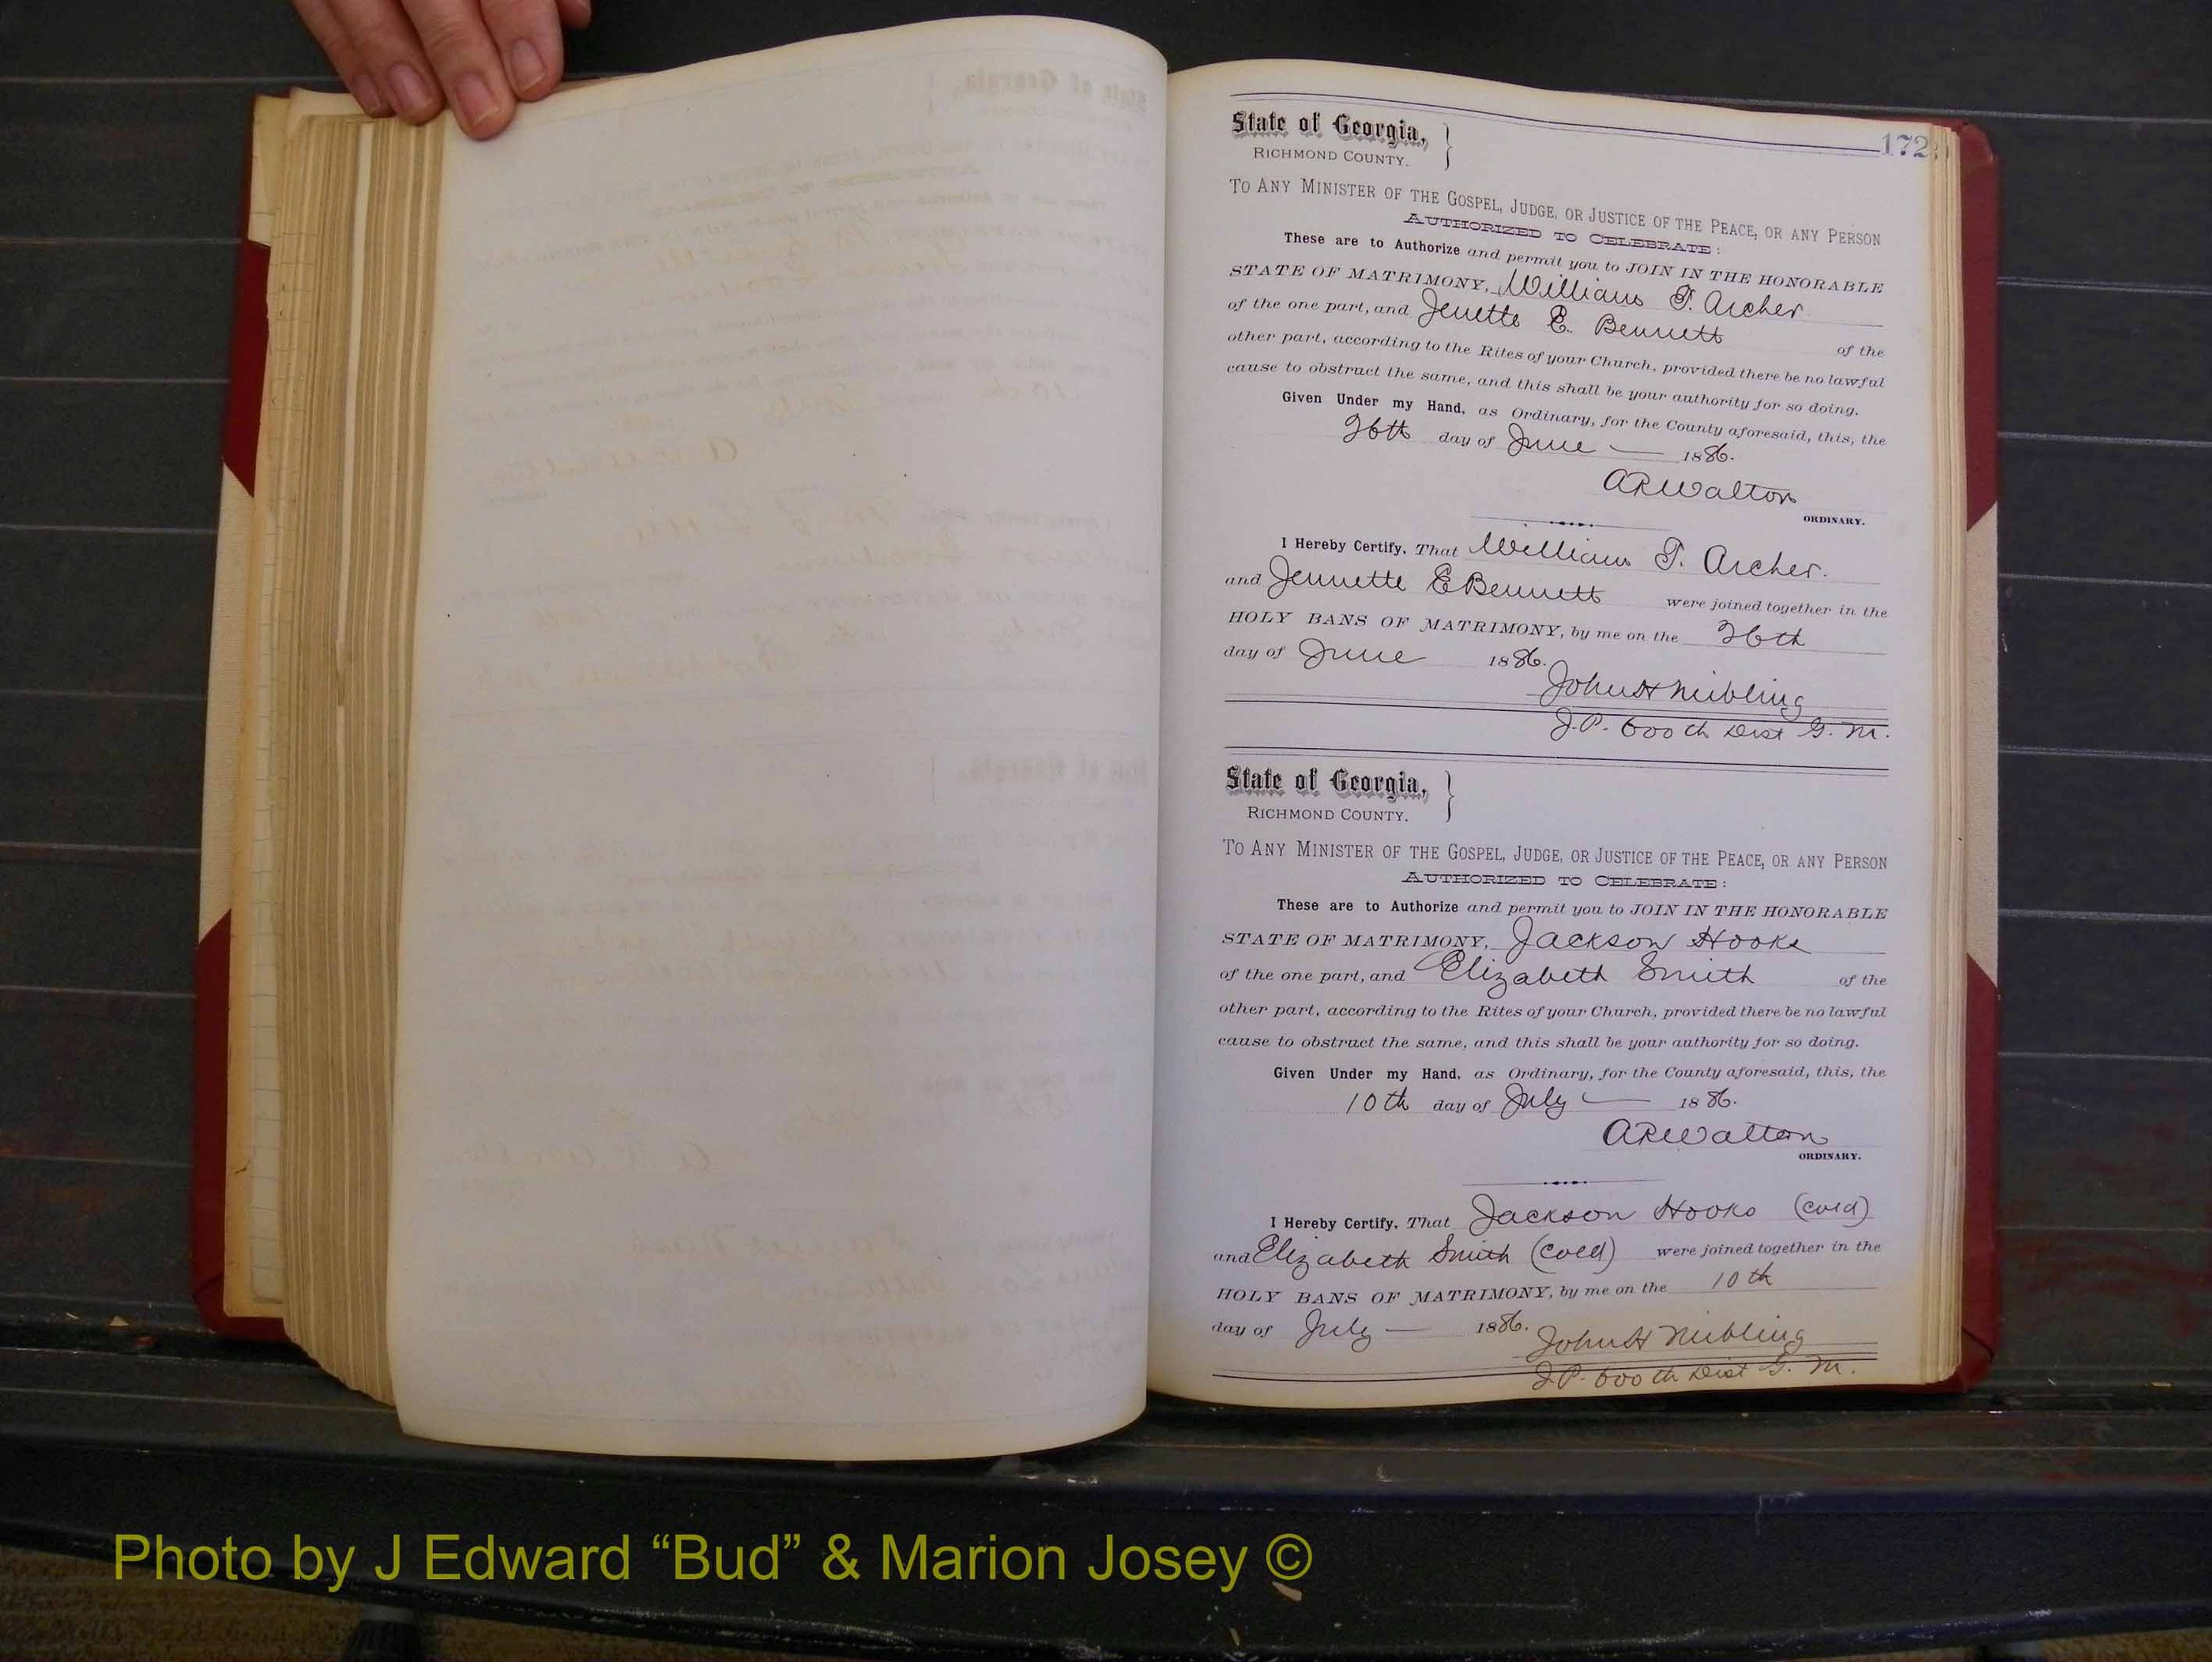 172
State of Georgia, }
RICHMOND COUNTY.
TO ANY MINISTER OF THE GOSPEL, JUDGE, OR JUSTICE OF THE PEACE, OR ANY PERSON
AUTHORIZED TO CELEBRATE:
These are to Authorize and permit you to JOIN IN THE HONORABLE
STATE OF MATRIMONY, William T. Archer.
of the one part, and Jenette E. Bennett of the
other part, according to the Rites of your Church, provided there be no lawful
cause to obstruct the same, and this shall be your authority for so doing.
Given Under my Hand, as Ordinary, for the County aforesaid, this, the
26th day of June — 1886.
ARWalton
ORDINARY.
I Hereby Certify, That William T. Archer.
and Jennette E Bennett were joined together in the
HOLY BANS OF MATRIMONY, by me on the 26th
day of June 1886.
John H Nibling
J.P. 600th Dist G. M.
State of Georgia, }
RICHMOND COUNTY.
TO ANY MINISTER OF THE GOSPEL, JUDGE, OR JUSTICE OF THE PEACE, OR ANY PERSON
AUTHORIZED TO CELEBRATE:
These are to Authorize and permit you to JOIN IN THE HONORABLE
STATE OF MATRIMONY, Jackson Hooks
of the one part, and Elizabeth Smith of the
other part, according to the Rites of your Church, provided there be no lawful
cause to obstruct the same, and this shall be your authority for so doing.
Given Under my Hand, as Ordinary, for the County aforesaid, this, the
10th day of July — 1886.
ARWalton
ORDINARY.
I Hereby Certify, That Jackson Hooks (cold)
and Elizabeth Smith (cold) were joined together in the
HOLY BANS OF MATRIMONY, by me on the 10th
day of July — 1886.
John H Nibling
J.P. 600th Dist G. M.
Photo by J Edward “Bud” & Marion Josey ©